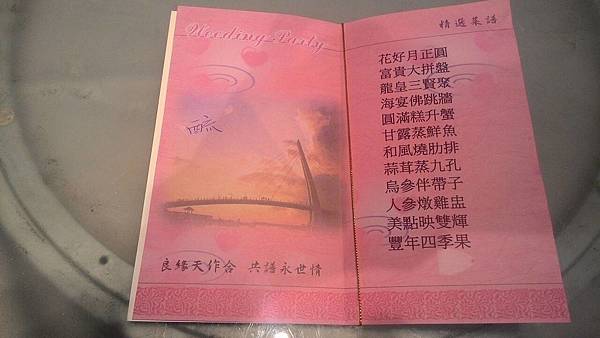 Wedding Party
良緣天作合 共譜永世情
精選菜譜
花好月正圓
富貴大拼盤
龍皇三賢聚
海宴佛跳牆
圓滿糕升蟹
甘露蒸鮮魚
和風燒肋排
蒜茸蒸九孔
烏參伴帶子
人參燉雞盅
美點映雙輝
豐年四季果